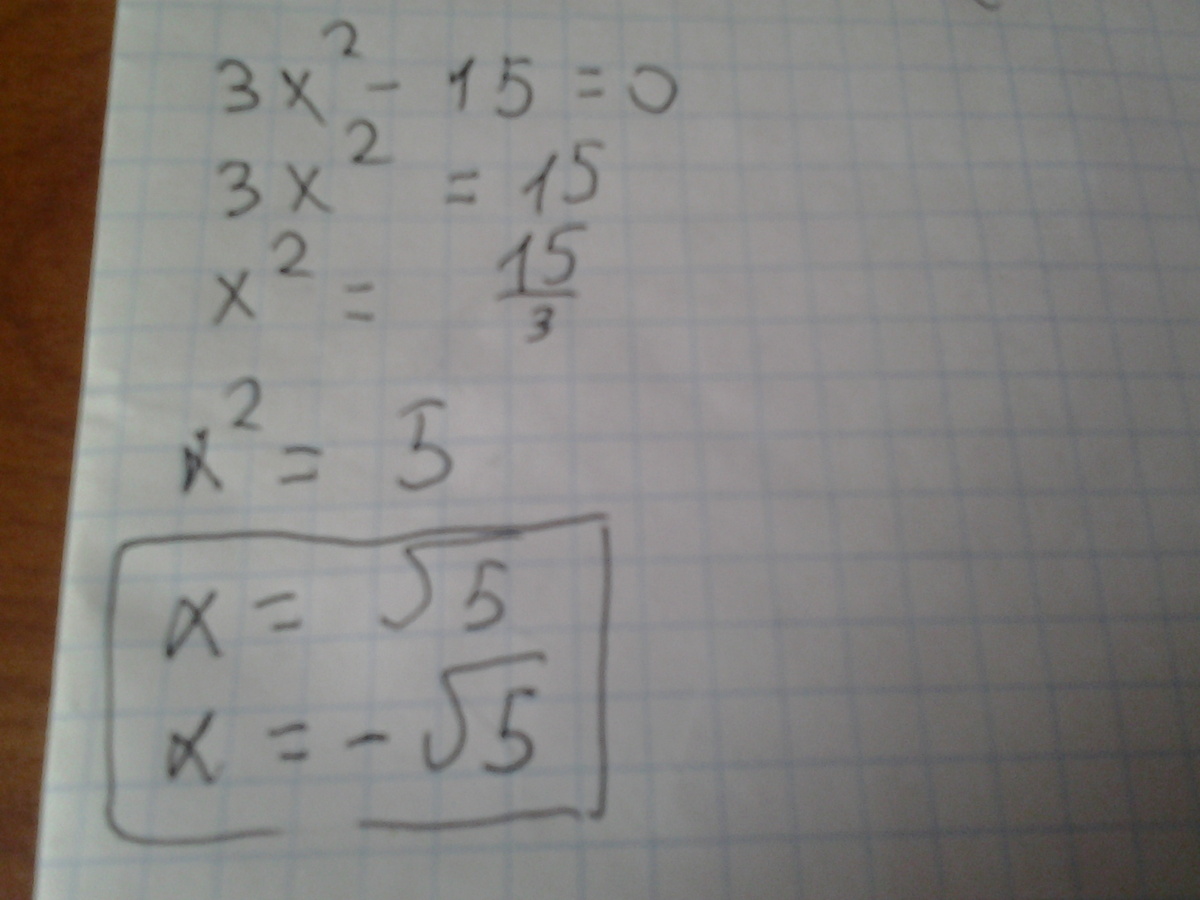 3x² - 15 = 0
3x² = 15
x² = 15/3
x² = 5
x = √5
x = -√5